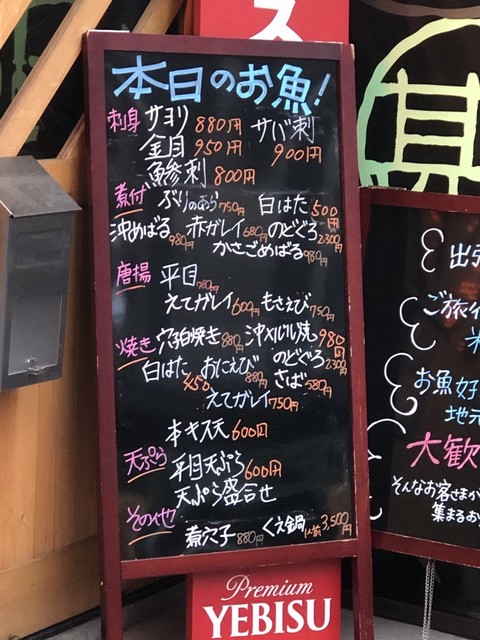 ス
本日のお魚!
刺身 サヨリ 880円 サバ刺
金目 950円 900円
鯵刺 800円
煮付 ぶりのあら 750円 白はた 500円
沖めばる 980円 赤ガレイ 680円 のどぐろ 2,300円
かさごめばる 980円
唐揚 平目 780円
えてガレイ 600円 もさえび 750円
焼き 穴子白焼き 880円 沖メバル焼 980円
白はた 450 おにえび 880円 のどぐろ 2,300
さば 580円
えてガレイ 750円
本キス天 600円
天ぷら 平目天ぷら 600円
天ぷら盛合せ
その他 煮穴子 880円 くえ鍋 1人前 3,500円
Premium
YEBISU
出張
ご旅行
お魚好
地元
大歓
そんなお客さまが
集まるお